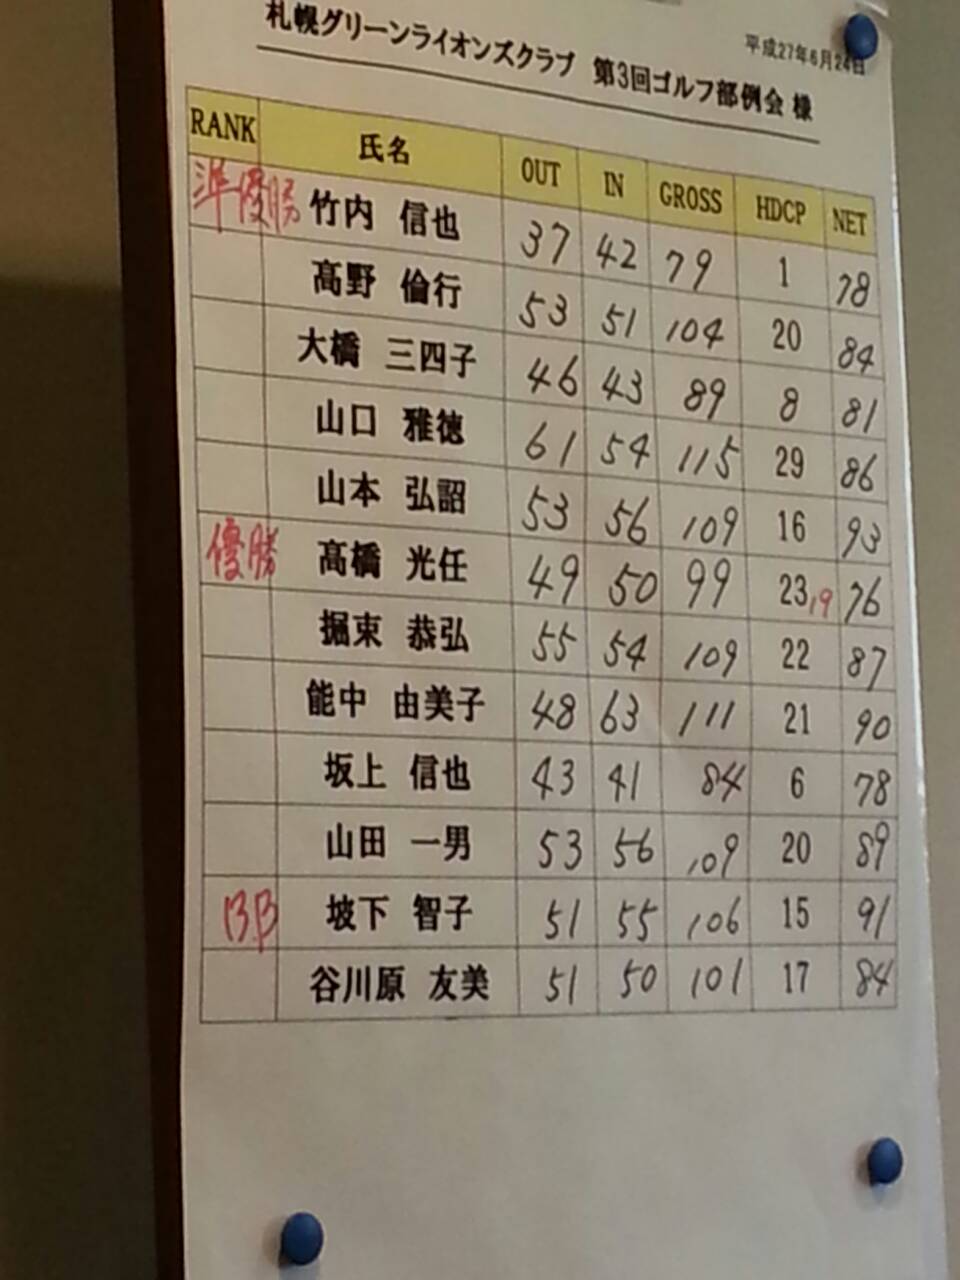 札幌グリーンライオンズクラブ 第3回ゴルフ部例会 様
平成27年6月24日
RANK 氏名 OUT IN GROSS HDCP NET
準優勝 竹内 信也 37 42 79 1 78
高野 倫行 53 51 104 20 84
大橋 三四子 46 43 89 8 81
山口 雅徳 61 54 115 29 86
山本 弘詔 53 56 109 16 93
優勝 高橋 光任 49 50 99 23 19 76
掘束 恭弘 55 54 109 22 87
能中 由美子 48 63 111 21 90
坂上 信也 43 41 84 6 78
山田 一男 53 56 109 20 89
B.B 坡下 智子 51 55 106 15 91
谷川原 友美 51 50 101 17 84